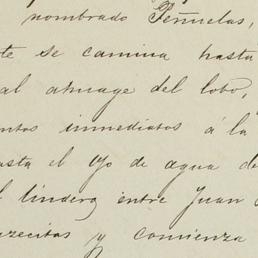 nombrado Peñuelas,
te se camina hasta
al atuage del lobo,
ntos inmediatos á la
asta el ojo de agua de
l lindero entre Juan
zecitas y comienza